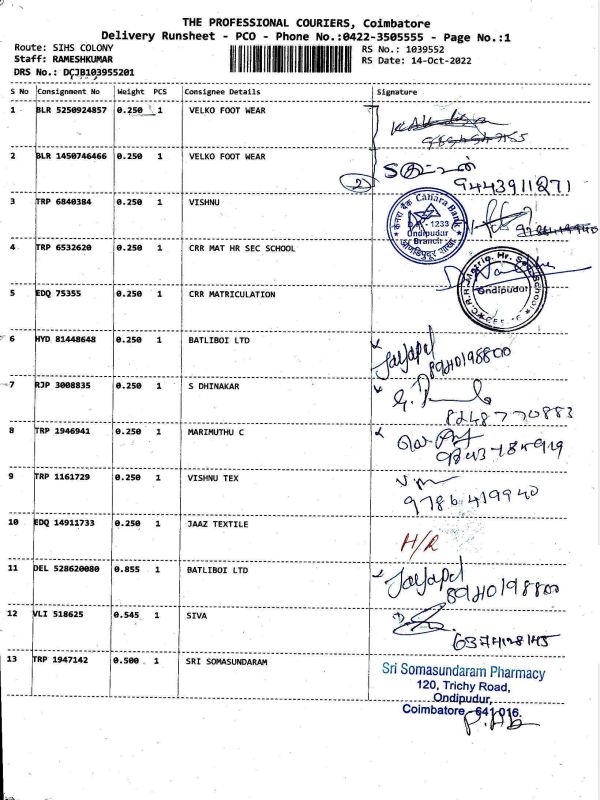 THE PROFESSIONAL COURIERS, Coimbatore
Delivery Runsheet - PCO - Phone No.:0422-3505555 - Page No.:1
Route: SIHS COLONY RS No.: 1039552
Staff: RAMESHKUMAR RS Date: 14-Oct-2022
DRS No.: DCJB103955201
S No Consignment No Weight PCS Consignee Details Signature
1 BLR 5250924857 0.250 1 VELKO FOOT WEAR
2 BLR 1450746466 0.250 1 VELKO FOOT WEAR
2
3 TRP 6840384 0.250 1 VISHNU
केनरा बैंक Canara Bank
1233
Ondipudur
Branch
4 TRP 6532620 0.250 1 CRR MAT HR SEC SCHOOL
C.R.R. Matriq. Hr. Sec. School
Ondipudur
5 EDQ 75355 0.250 1 CRR MATRICULATION
6 HYD 81448648 0.250 1 BATLIBOI LTD
Jayapal
8940198800
7 RJP 3008835 0.250 1 S DHINAKAR
8248770883
8 TRP 1946941 0.250 1 MARIMUTHU C
9 TRP 1161729 0.250 1 VISHNU TEX
9786419940
10 EDQ 14911733 0.250 1 JAAZ TEXTILE
H/R
11 DEL 528620080 0.855 1 BATLIBOI LTD
Jayapal
8940198800
12 VLI 518625 0.545 1 SIVA
6374128145
13 TRP 1947142 0.500 1 SRI SOMASUNDARAM
Sri Somasundaram Pharmacy
120, Trichy Road,
Ondipudur,
Coimbatore - 641 016.